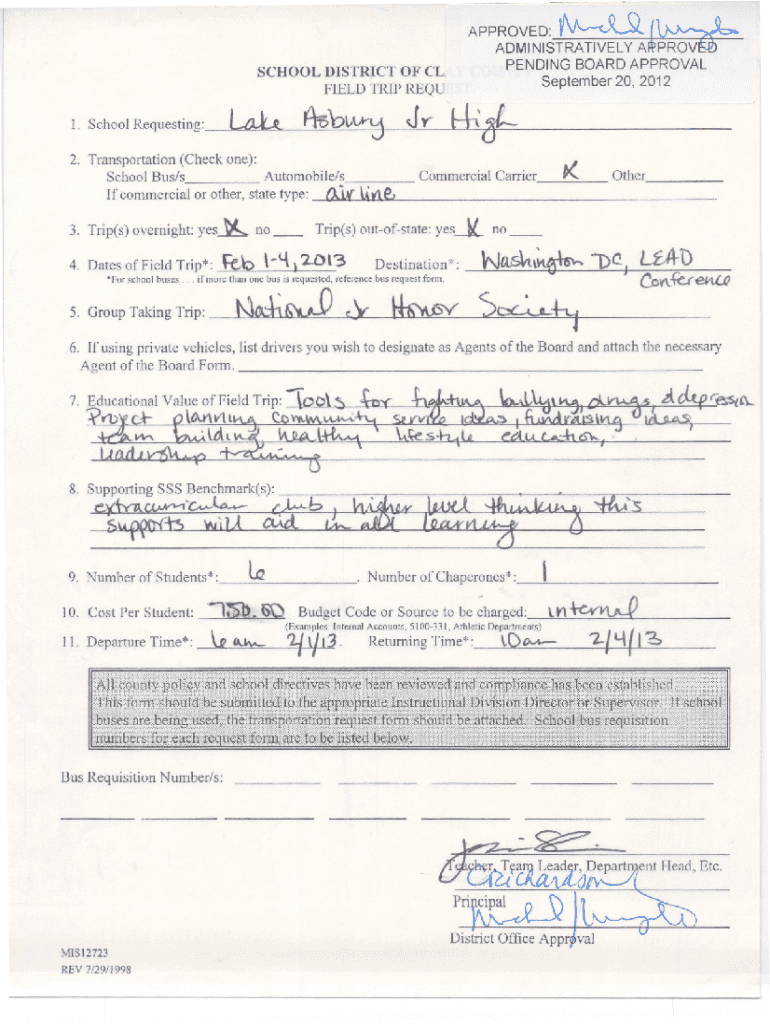 APPROVED:
ADMINISTRATIVELY APPROVED
PENDING BOARD APPROVAL
September 20, 2012
SCHOOL DISTRICT OF CLAY COUNTY
FIELD TRIP REQUEST
1. School Requesting: Lake Asbury Jr High
2. Transportation (Check one):
School Bus/s Automobile/s Commercial Carrier X Other
If commercial or other, state type: airline
3. Trip(s) overnight: yes X no Trip(s) out-of-state: yes X no
4. Dates of Field Trip*: Feb 1-4, 2013 Destination*: Washington DC, LEAD
*For school buses . . . if more than one bus is requested, reference bus request form. Conference
5. Group Taking Trip: National Jr Honor Society
6. If using private vehicles, list drivers you wish to designate as Agents of the Board and attach the necessary
Agent of the Board Form.
7. Educational Value of Field Trip: Tools for fighting bullying, drugs, & depression
Project planning community service ideas, fundraising ideas,
team building, healthy lifestyle education,
leadership training
8. Supporting SSS Benchmark(s):
extracurricular club, higher level thinking this
supports will aid in all learning
9. Number of Students*: 6 . Number of Chaperones*: 1
10. Cost Per Student: 750.00 Budget Code or Source to be charged: internal
(Examples: Internal Accounts, 5100-331, Athletic Departments)
11. Departure Time*: 6 am 2/1/13. Returning Time*: 10am 2/4/13
All county policy and school directives have been reviewed and compliance has been established.
This form should be submitted to the appropriate Instructional Division Director or Supervisor. If school
buses are being used, the transportation request form should be attached. School bus requisition
numbers for each request form are to be listed below.
Bus Requisition Number/s:
Teacher, Team Leader, Department Head, Etc.
CRichardson
Principal
District Office Approval
MIS12723
REV 7/29/1998